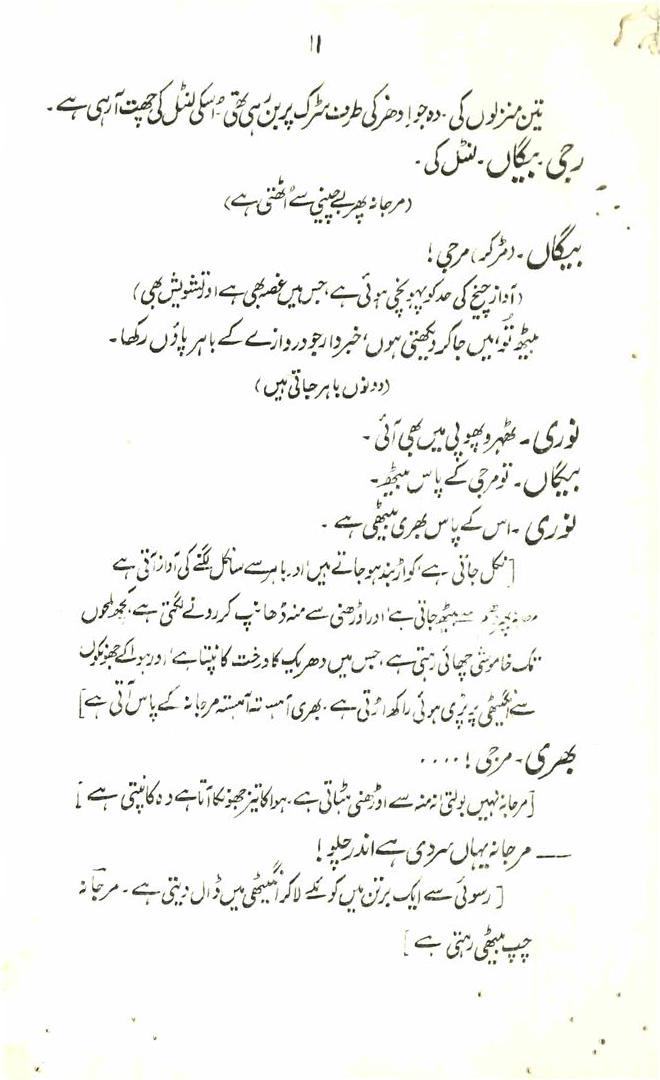 ۱۱
تین منزلوں کی ۔ وہ جو اِدھر کی طرف سڑک پر بن رہی تھی، اُسکی لنٹل کی چھت آ رہی ہے ۔
رجی بیگاں ۔ لنٹل کی ۔
(مرجانہ پھر بے چینی سے اُٹھتی ہے)
بیگاں ۔ (مڑ کر) مرجی !
(آواز چیخ کی حد کو پہونچی ہوئی ہے، جس میں غصہ بھی ہے اور تشویش بھی)
بیٹھ تُو، میں جا کر دیکھتی ہوں، خبردار جو دروازے کے باہر پاؤں رکھا ۔
(دونوں باہر جاتی ہیں)
نوری ۔ ٹھہرو پھوپی میں بھی آئی ۔
بیگاں ۔ تو مرجی کے پاس بیٹھ ۔
نوری ۔ اس کے پاس بھری بیٹھی ہے ۔
[نکل جاتی ہے، کواڑ بند ہو جاتے ہیں، اور باہر سے سانکل لگنے کی آواز آتی ہے
مرجانہ پھر سے بیٹھ جاتی ہے، اور اوڑھنی سے منہ ڈھانپ کر رونے لگتی ہے، کچھ لمحوں
تک خاموشی چھائی رہتی ہے، جس میں دھریک کا درخت کانپتا ہے، اور ہوا کے جھونکوں
سے انگیٹھی پر پڑی ہوئی راکھ اڑتی ہے ۔ بھری آہستہ آہستہ مرجانہ کے پاس آتی ہے]
بھری ۔ مرجی ! ....
[مرجانہ نہیں بولتی، نہ منہ سے اوڑھنی ہٹاتی ہے ۔ ہوا کا تیز جھونکا آتا ہے وہ کانپتی ہے]
—— مرجانہ یہاں سردی ہے اندر چلو !
[رسوئی سے ایک برتن میں کوئلے لا کر انگیٹھی میں ڈال دیتی ہے ۔ مرجانہ
چپ بیٹھی رہتی ہے]